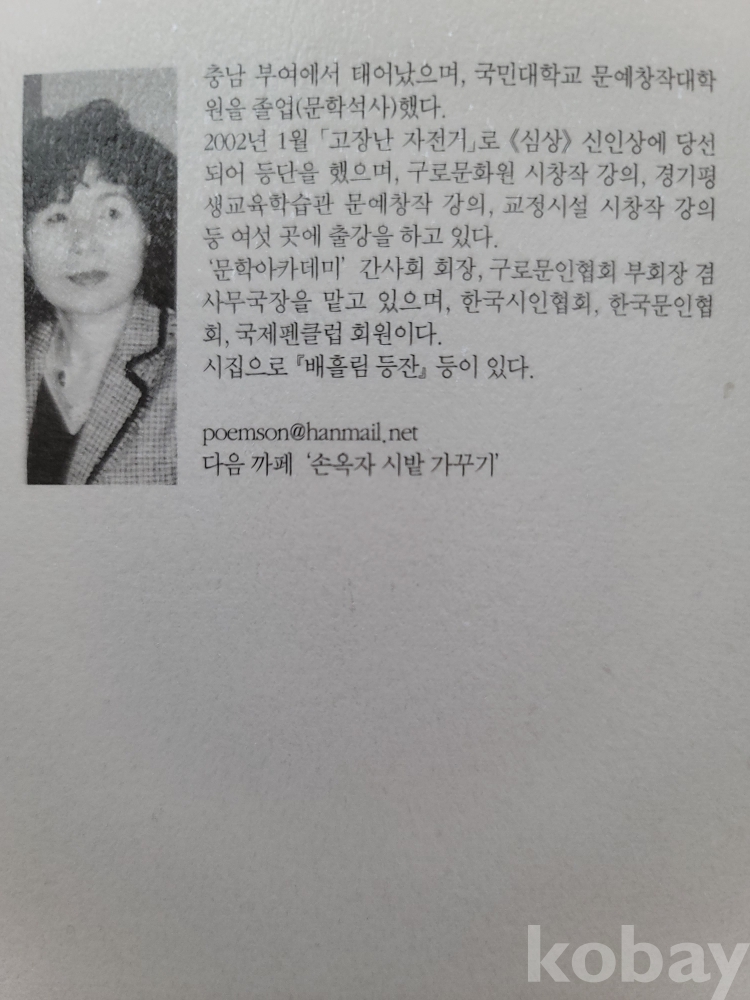 충남 부여에서 태어났으며, 국민대학교 문예창작대학
원을 졸업(문학석사)했다.
2002년 1월 「고장난 자전거」로 《심상》 신인상에 당선
되어 등단을 했으며, 구로문화원 시창작 강의, 경기평
생교육학습관 문예창작 강의, 교정시설 시창작 강의
등 여섯 곳에 출강을 하고 있다.
'문학아카데미' 간사회 회장, 구로문인협회 부회장 겸
사무국장을 맡고 있으며, 한국시인협회, 한국문인협
회, 국제펜클럽 회원이다.
시집으로 『배흘림 등잔』 등이 있다.
poemson@hanmail.net
다음 까페 '손옥자 시밭 가꾸기'
kobay